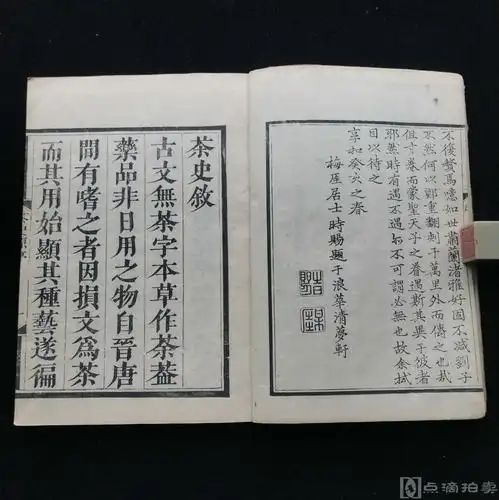 不復贅焉噫如世肅蘭渚雅好固不減劉子
不然何以鄭重翻刻于萬里外而傳之也哉
但寸卷而蒙聖天子之眷遇斯其異于彼者
耶然時有遇不遇不可謂必無也故余拭
目以待之
享和癸亥之春
梅厓居士時賜題于浪華清夢軒
茶史敘
古文無茶字本草作荼葢
藥品非日用之物自晉唐
間有嗜之者因損文爲茶
而其用始顯其種藝遂徧
点滴拍卖